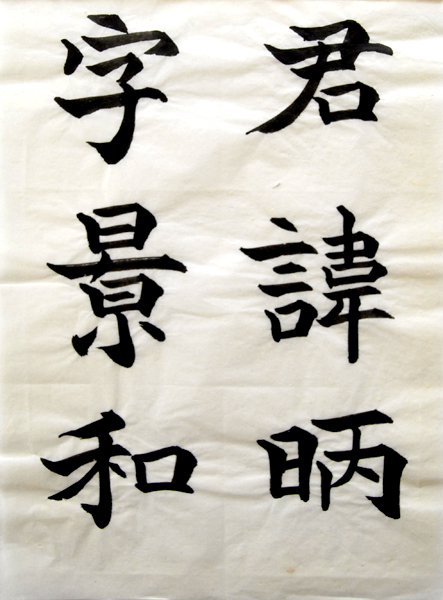 君諱昞
字景和